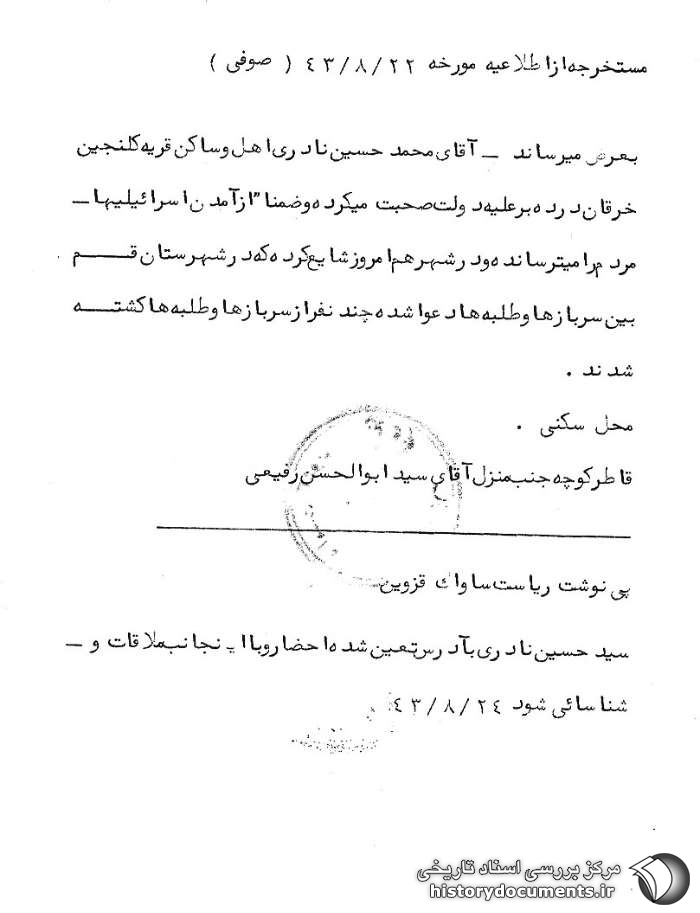 مستخرجه از اطلاعیه مورخه ۴۳/۸/۲۲ ( صوفی )
بعرض میرساند – آقای محمد حسین نادری اهل و ساکن قریه کلنجین
خرقان در ده بر علیه دولت صحبت میکرده و ضمنا" از آمدن اسرائیلیها –
مردم را میترسانده و در شهر هم امروز شایع کرده که در شهرستان قم
بین سربازها و طلبه ها دعوا شده چند نفر از سربازها و طلبه ها کشته
شدند .
محل سکنی .
قاطر کوچه جنب منزل آقای سید ابوالحسن رفیعی
پی نوشت ریاست ساواک قزوین
سید حسین نادری بآدرس تعین شده احضار و با اینجانب ملاقات و –
شناسائی شود ۴۳/۸/۲۴
مرکز بررسی اسناد تاریخی
historydocuments.ir